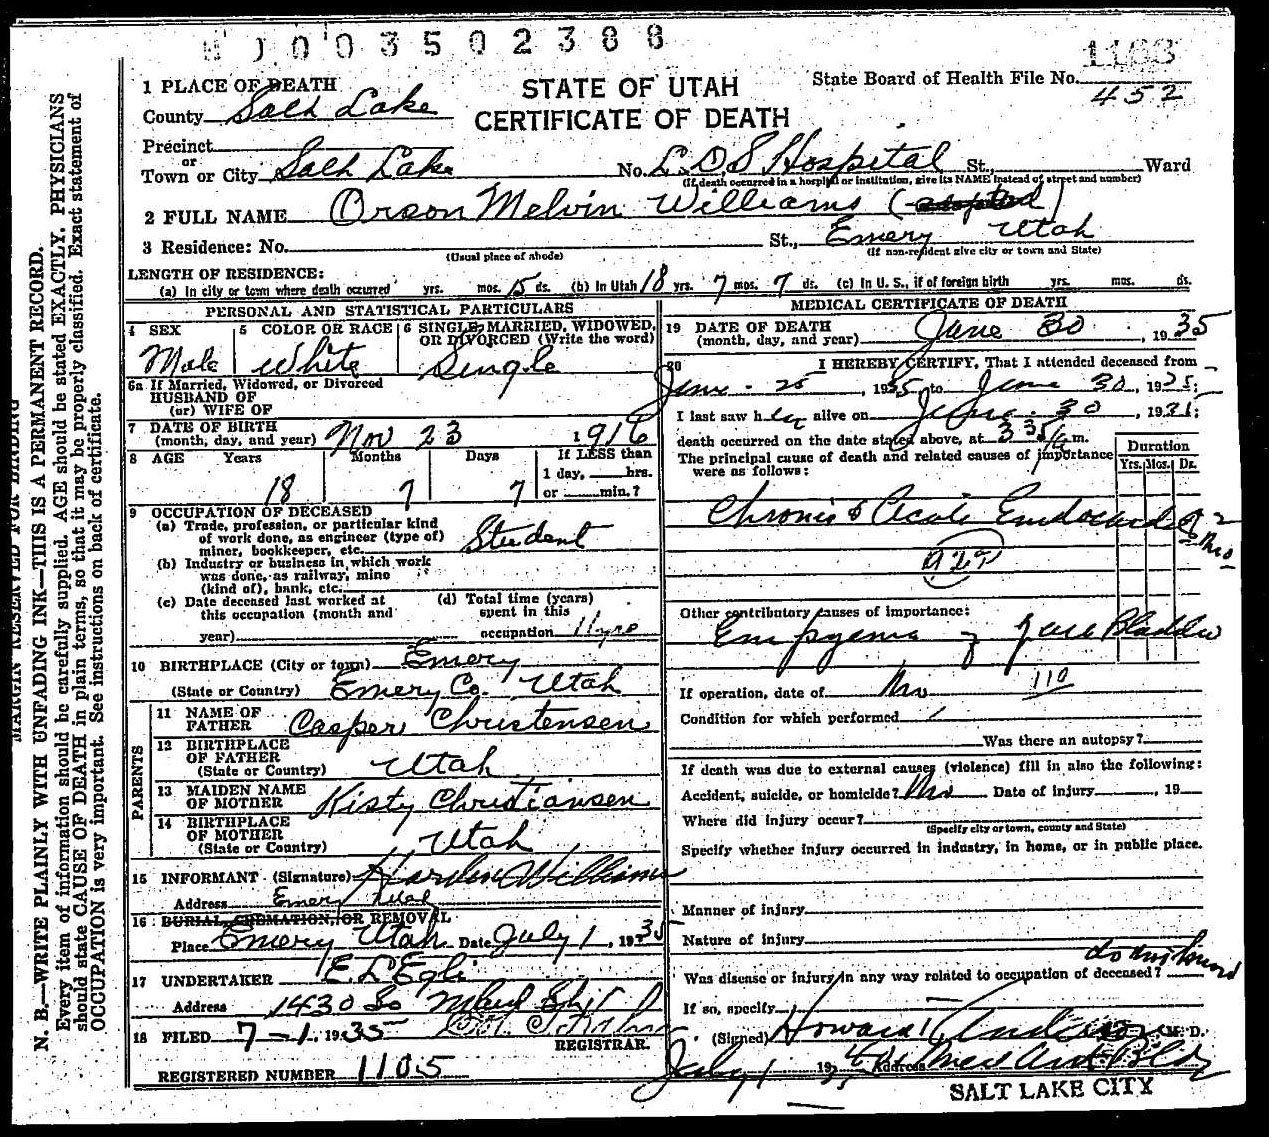 003502388
1 PLACE OF DEATH
STATE OF UTAH
CERTIFICATE OF DEATH
State Board of Health File No.
452
County Salt Lake
Precinct
or
Town or City Salt Lake No. L.D.S Hospital St., Ward
(If death occurred in a hospital or institution, give its NAME instead of street and number)
2 FULL NAME Orson Melvin Williams (adopted)
3 Residence: No. St., Emery Utah
(Usual place of abode) (If non-resident give city or town and State)
LENGTH OF RESIDENCE:
(a) In city or town where death occurred yrs. mos. 5 ds. (b) In Utah 18 yrs. 7 mos. 7 ds. (c) In U. S., if of foreign birth yrs. mos. ds.
PERSONAL AND STATISTICAL PARTICULARS
4 SEX 5 COLOR OR RACE 6 SINGLE, MARRIED, WIDOWED, OR DIVORCED (Write the word)
Male White Single
6a If Married, Widowed, or Divorced
HUSBAND OF
(or) WIFE OF
7 DATE OF BIRTH
(month, day, and year) Nov 23 1916
8 AGE Years Months Days If LESS than
1 day, hrs.
or min.?
18 7 7
9 OCCUPATION OF DECEASED
(a) Trade, profession, or particular kind
of work done, as engineer (type of)
miner, bookkeeper, etc. Student
(b) Industry or business in which work
was done, as railway, mine
(kind of), bank, etc.
(c) Date deceased last worked at
this occupation (month and
year)
(d) Total time (years)
spent in this
occupation 11yrs
10 BIRTHPLACE (City or town) Emery
(State or Country) Emery Co. Utah
PARENTS
11 NAME OF
FATHER Casper Christensen
12 BIRTHPLACE
OF FATHER
(State or Country) Utah
13 MAIDEN NAME
OF MOTHER Kisty Christiansen
14 BIRTHPLACE
OF MOTHER
(State or Country) Utah
15 INFORMANT (Signature) Williams
Address Emery Utah
16 BURIAL, CREMATION, OR REMOVAL
Place Emery Utah Date July 1, 1935
17 UNDERTAKER E L Egli
Address 1430 So
18 FILED 7-1, 1935
REGISTRAR.
REGISTERED NUMBER 1105
MEDICAL CERTIFICATE OF DEATH
19 DATE OF DEATH
(month, day, and year) June 30, 1935
20 I HEREBY CERTIFY, That I attended deceased from
June 25, 1935 to June 30, 1935;
I last saw him alive on June 30, 1935;
death occurred on the date stated above, at 3 35 m.
The principal cause of death and related causes of importance
were as follows:
Duration
Yrs. Mos. Ds.
Chronic & Acute Endocarditis 2
mo
Other contributory causes of importance:
Empyema of Gall Bladder
If operation, date of No 110
Condition for which performed
Was there an autopsy?
If death was due to external causes (violence) fill in also the following:
Accident, suicide, or homicide? No Date of injury , 19
Where did injury occur?
(Specify city or town, county and State)
Specify whether injury occurred in industry, in home, or in public place.
Manner of injury
Nature of injury
Was disease or injury in any way related to occupation of deceased? do not know
If so, specify
(Signed) Howard Anderson M. D.
July 1 19 35 Address Med Arts Bldg
SALT LAKE CITY
MARGIN RESERVED FOR BINDING
N. B.—WRITE PLAINLY WITH UNFADING INK—THIS IS A PERMANENT RECORD.
Every item of information should be carefully supplied. AGE should be stated EXACTLY. PHYSICIANS
should state CAUSE OF DEATH in plain terms, so that it may be properly classified. Exact statement of
OCCUPATION is very important. See instructions on back of certificate.